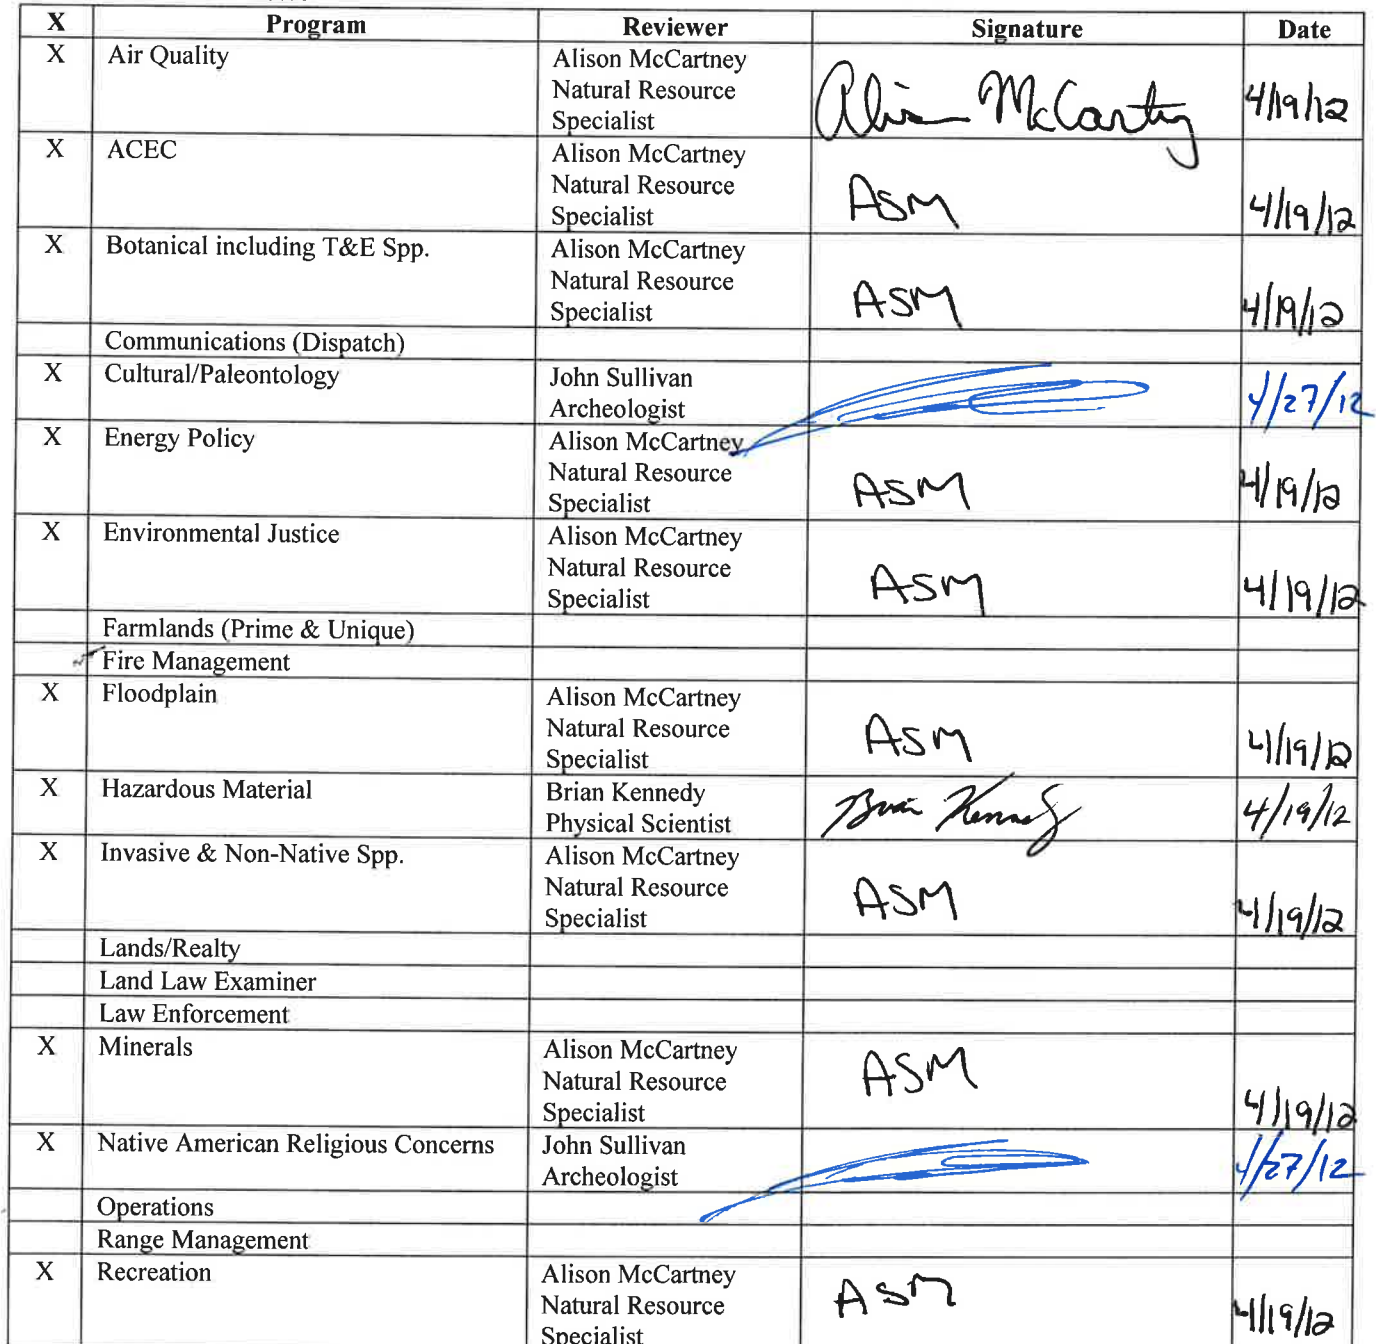 X Program Reviewer Signature Date
X Air Quality Alison McCartney
Natural Resource
Specialist Alison McCartney 4/19/12
X ACEC Alison McCartney
Natural Resource
Specialist ASM 4/19/12
X Botanical including T&E Spp. Alison McCartney
Natural Resource
Specialist ASM 4/19/12
Communications (Dispatch)
X Cultural/Paleontology John Sullivan
Archeologist 4/27/12
X Energy Policy Alison McCartney
Natural Resource
Specialist ASM 4/19/12
X Environmental Justice Alison McCartney
Natural Resource
Specialist ASM 4/19/12
Farmlands (Prime & Unique)
Fire Management
X Floodplain Alison McCartney
Natural Resource
Specialist ASM 4/19/12
X Hazardous Material Brian Kennedy
Physical Scientist Brian Kennedy 4/19/12
X Invasive & Non-Native Spp. Alison McCartney
Natural Resource
Specialist ASM 4/19/12
Lands/Realty
Land Law Examiner
Law Enforcement
X Minerals Alison McCartney
Natural Resource
Specialist ASM 4/19/12
X Native American Religious Concerns John Sullivan
Archeologist 4/27/12
Operations
Range Management
X Recreation Alison McCartney
Natural Resource
Specialist ASM 4/19/12